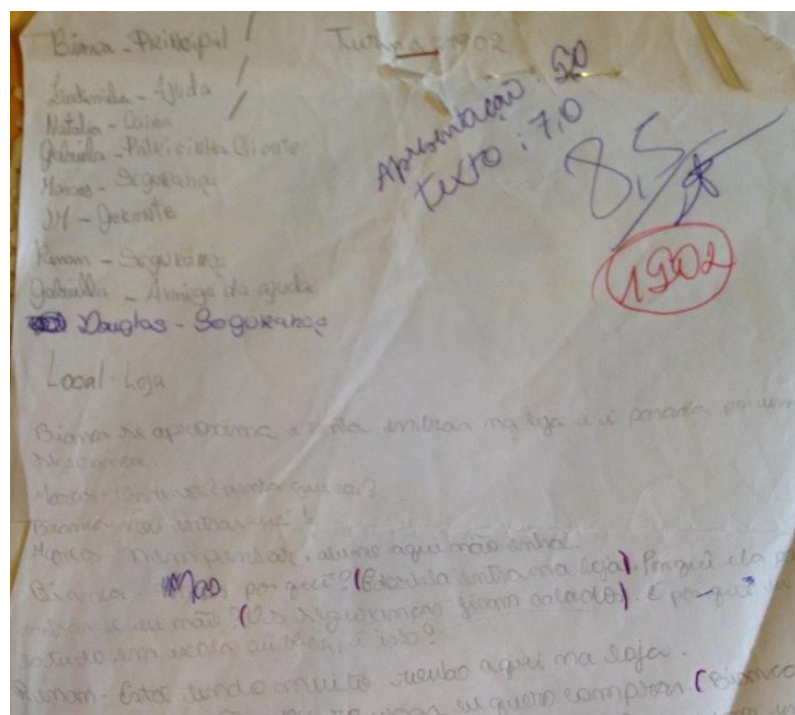 Bianca - Principal
Turma - 1902
Ludmila - Ajuda
Natalia - Caixa
Gabriela - Patricinha Cliente
Marcos - Segurança
JM - Gerente
Renan - Segurança
Gabriella - Amiga da ajuda
Douglas - Segurança
Apresentação:
Texto: 7,0
8,5
1902
Local - Loja
Bianca se aproxima e tenta entrar na loja e é parada por um
segurança.
Marcos - Onde você pensa que vai?
Bianca - vou entrar
Marcos - nem pensar, aluno aqui não entra.
Bianca - Mas por quê? (Gabriela entra na loja). Porquê ela
entrar e eu não? (Os seguranças ficam calados). É porquê eu
estudo em escola pública, é isto?
Renan - Está tendo muito roubo aqui na loja.
eu quero comprar. (Bianca